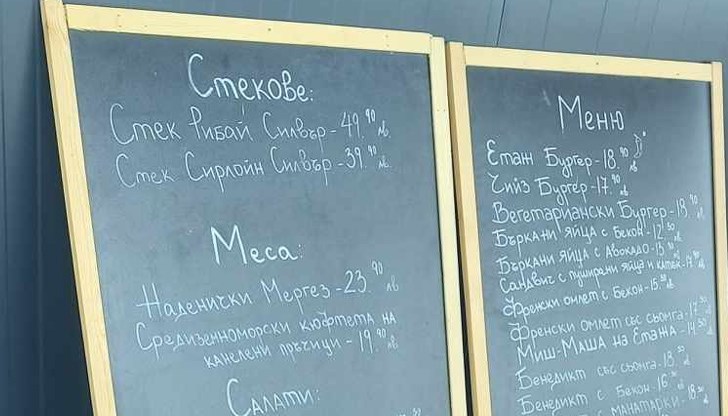 Стекове:
Стек Рибай Силвър - 49.90 лв.
Стек Сирлойн Силвър - 39.90 лв.
Меса:
Наденички Мергез - 23.90 лв
Средизенноморски кюфтета на
канелени пръчици - 19.90 лв.
Салати:
Меню
Етаж Бургер - 18.90 лв
Чийз Бургер - 17.90 лв
Вегетариански Бургер - 18.90 лв
Бъркани яйца с Бекон - 12.50 лв
Бъркани яйца с Авокадо - 13.50 лв
Сандвич с пуширани яйца и
Френски омлет с Бекон - 15.50 лв
Френски омлет със сьомга - 17.50 лв
Миш-Маша на Етажа - 14.50 лв
Бенедикт със сьомга - 18.50 лв
Бенедикт с Бекон - 16.50 лв